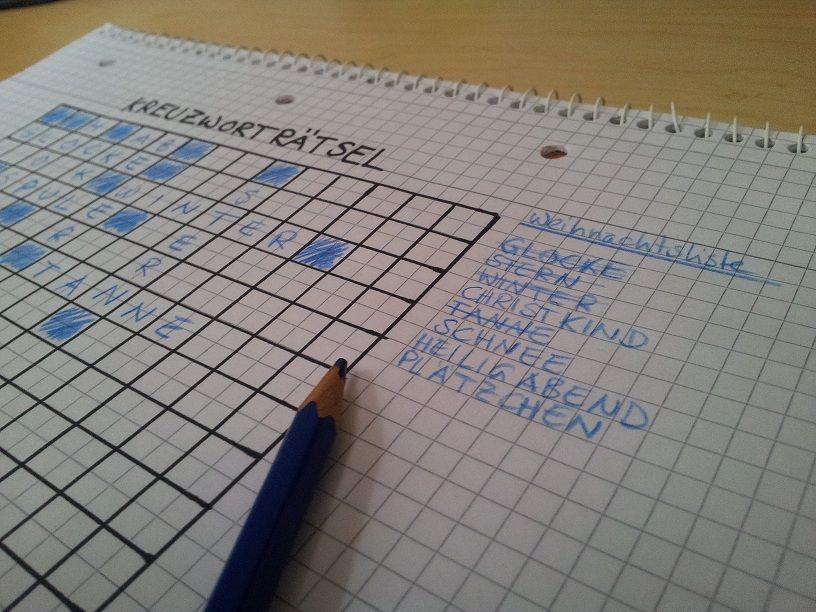 KREUZWORTRÄTSEL
HAB
GLOCKE S
WINTER
SPULE E
R R
TANNE
Weihnachtsliste
GLOCKE
STERN
WINTER
CHRISTKIND
TANNE
SCHNEE
HEILIGABEND
PLÄTZCHEN